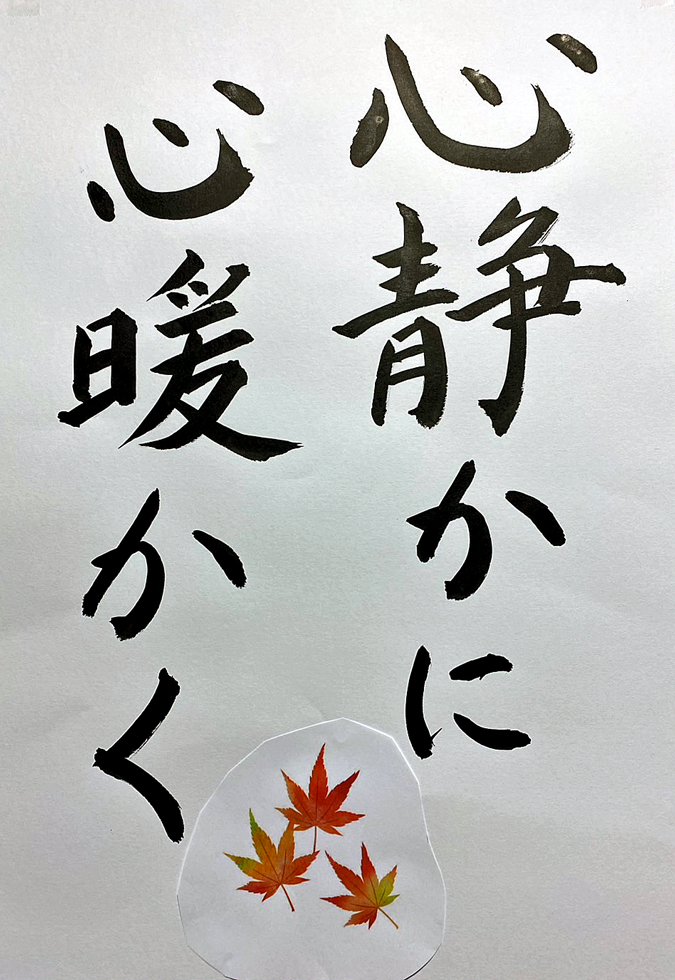 心静かに
心暖かく